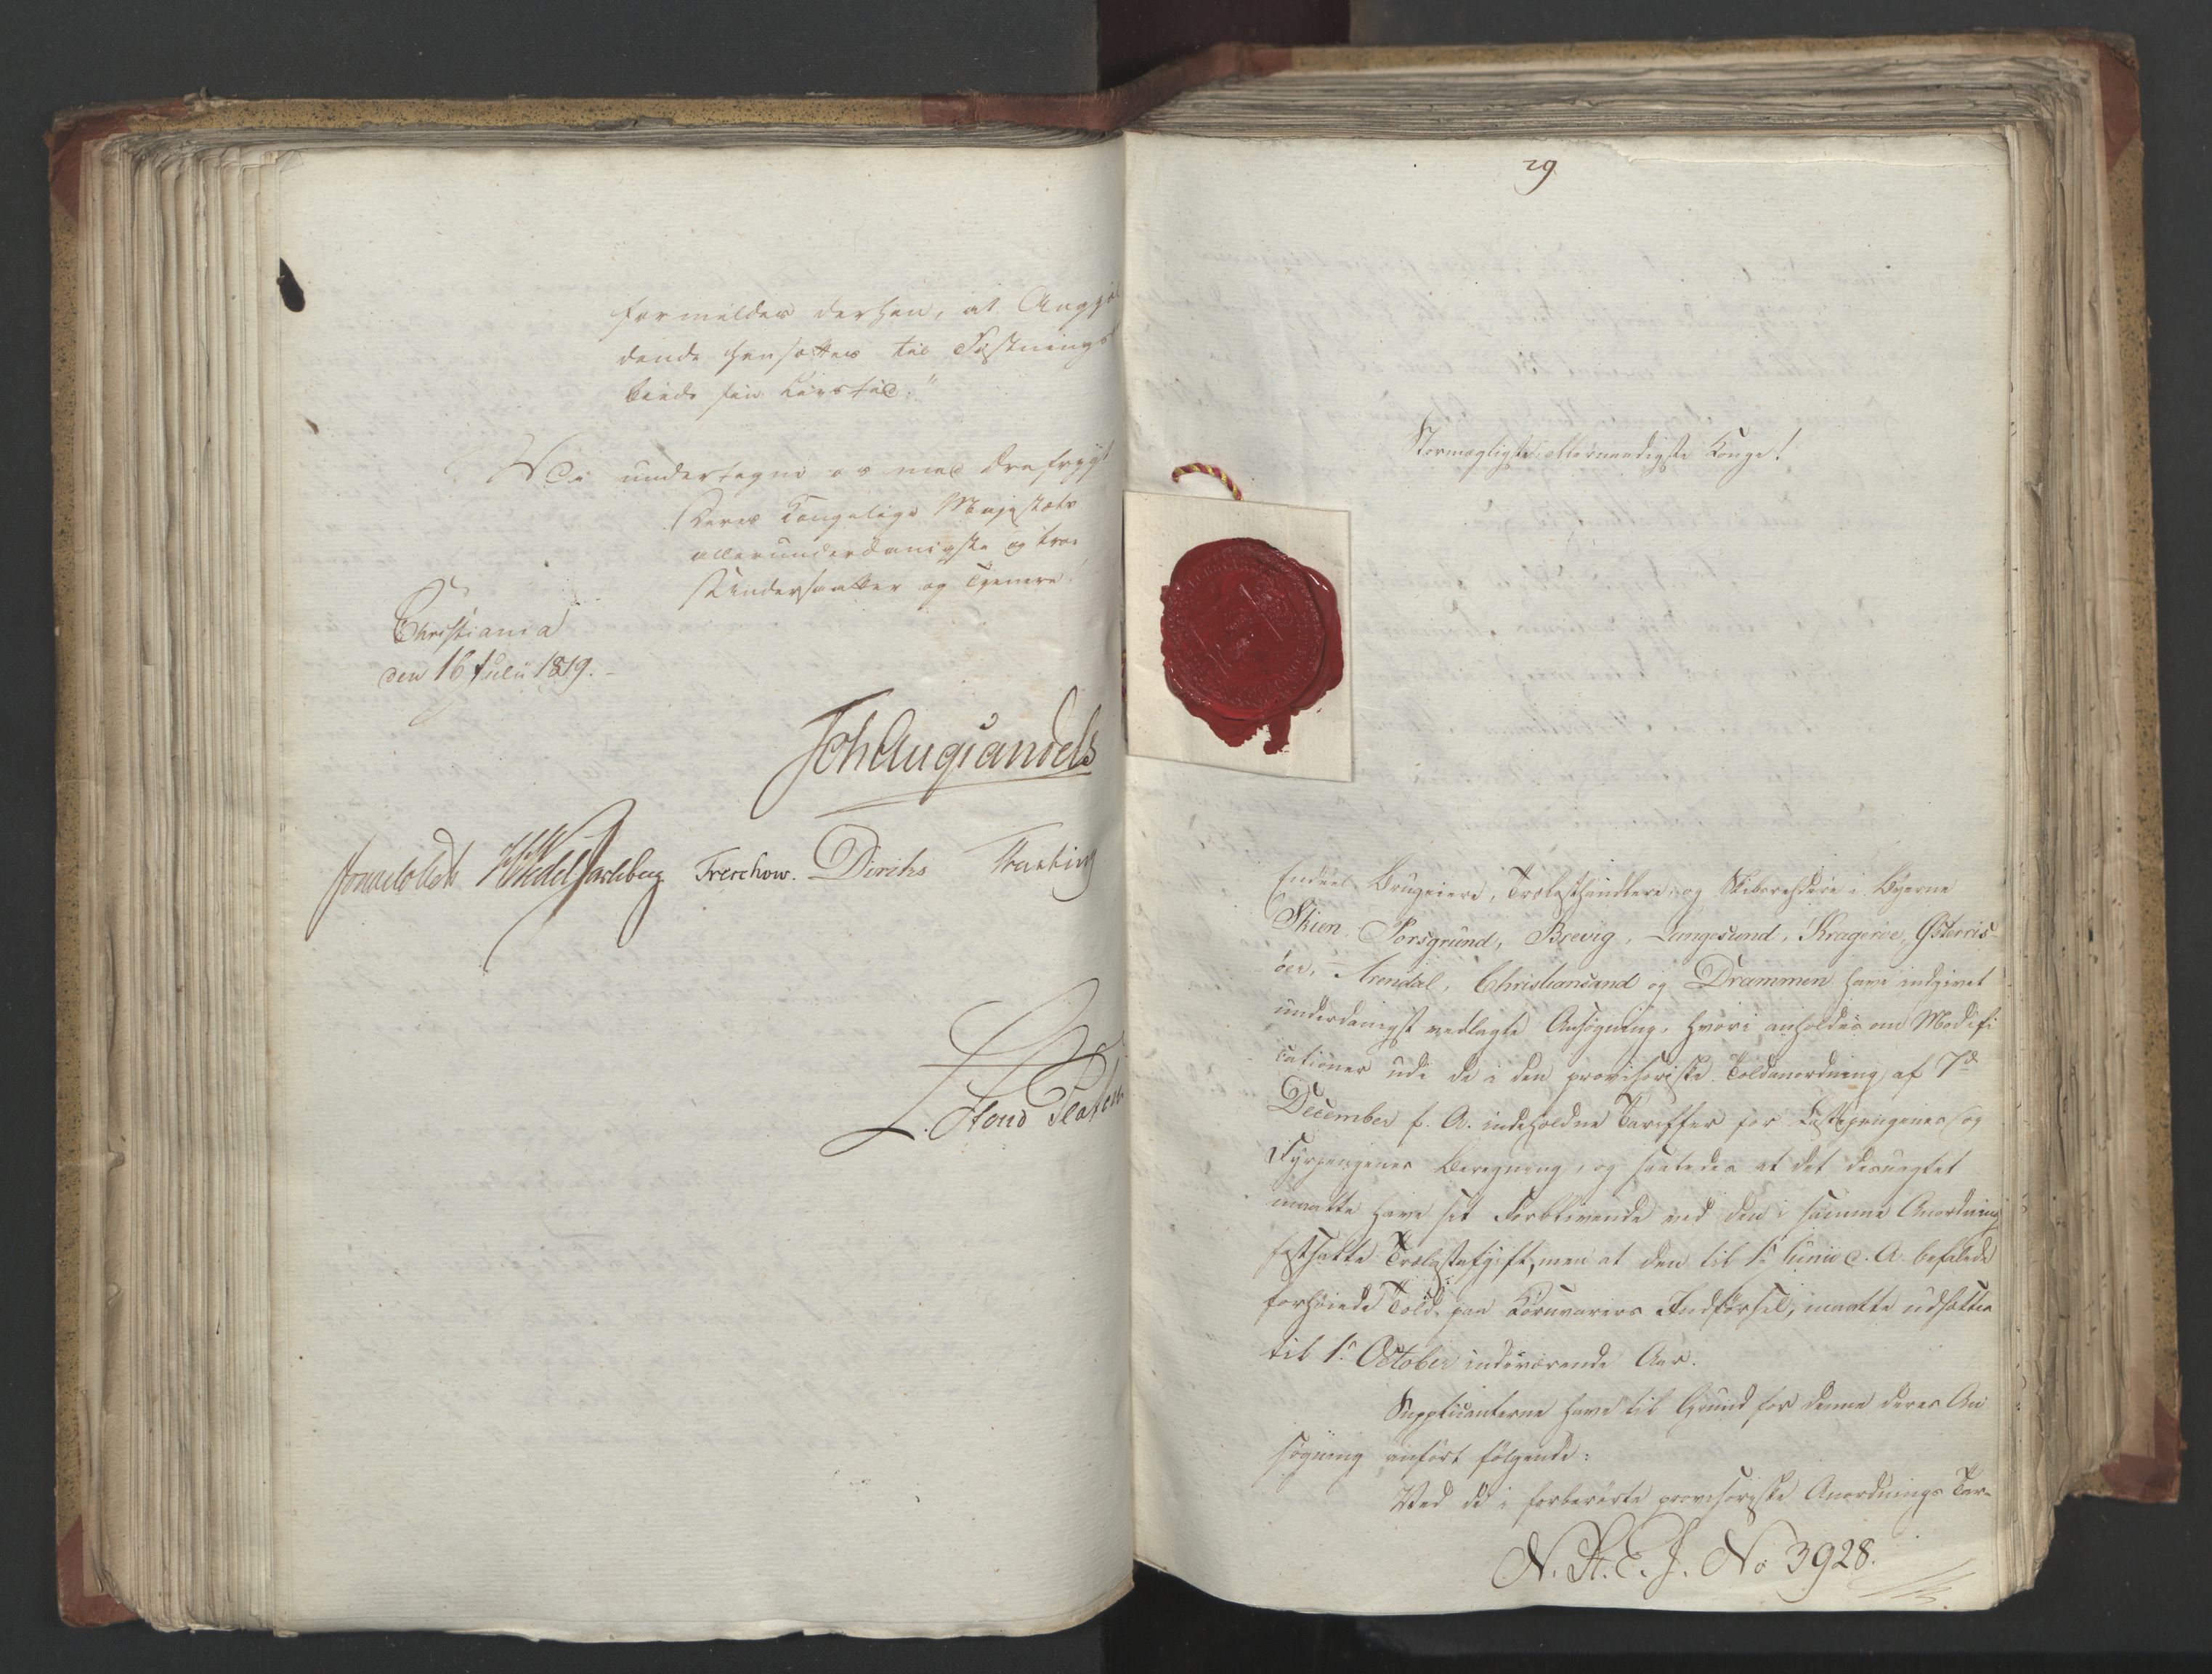 formildes derhen, at Angjel
dende hensættes til Fæstnings
Livstid."
Vi undertegne os med Ærefrygt
Deres Kongelige Majestæts
allerunderdanigste og troe
Undersaatter og Tjenere
Christiania
den 16 Julii 1819.
Joh Aug Sandels
HWedel Jarlsberg Treschow. Diriks
29
Stormægtigste allernaadigste Konge!
Endeel Brugeiere, Trælasthandlere og Skibsrehdere i Byerne
Skien, Porsgrund, Brevig, Langesund, Krageröe, Österriis-
öer, Arendal, Christiansand og Drammen have indgivet
underdanigst vedlagte Ansögning, hvori anholdes om Modifi
cationer udi de i den provisoriske Toldanordning af 7de
December f. A. indeholdne Tariffer for Læstepengenes og
Fyrpengenes Beregning, og saaledes at det desuagtet
maatte have sit Forblivende ved den i samme Anordning
fastsatte Trælastafgift, men at den til 1. Junii d. A. befalede
forhöiede Told paa Kornvarers Indförsel, maatte udsættes
til 1. October indeværende Aar.
Supplicanterne have til Grund for denne deres An
sögning anfört fölgende:
Ved de i forberörte provisoriske Anordnings Tar-
N. St. E. J. No 3928.